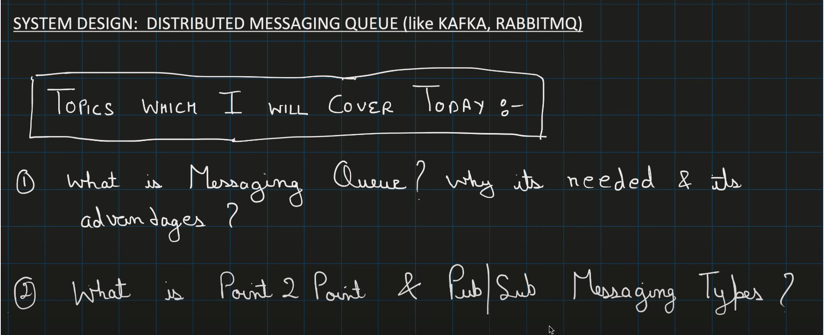 SYSTEM DESIGN: DISTRIBUTED MESSAGING QUEUE (like KAFKA, RABBITMQ)
TOPICS WHICH I WILL COVER TODAY :-
① What is Messaging Queue? Why its needed & its
advantages?
② What is Point 2 Point & Pub/Sub Messaging Types?